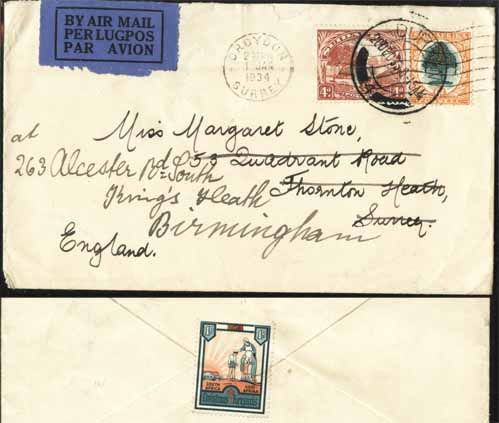 BY AIR MAIL
PER LUGPOS
PAR AVION
CROYDON
JAN
1934
SURREY
4d
Miss Margaret Stone,
at
53 Quadrant Road
263 Alcester Rd South
Thornton Heath,
King's Heath
Surrey.
Birmingham
England.
SOUTH AFRICA